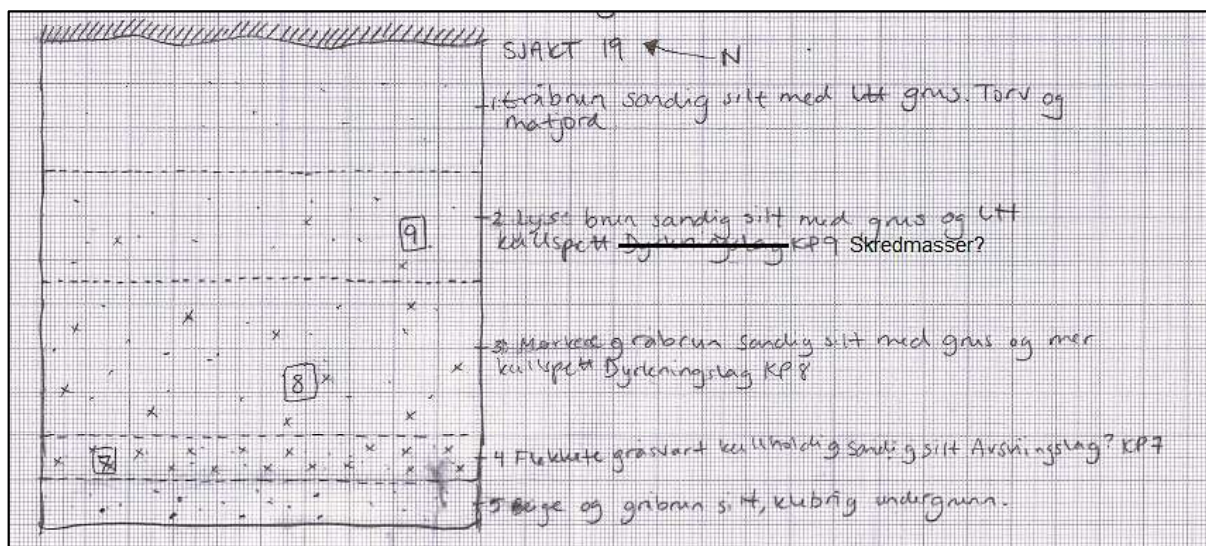 SJAKT 19 N
1 Gråbrun sandig silt med litt grus. Torv og
matjord
2 Lyse brun sandig silt med grus og litt
kullspett Dyrkningslag KP9 Skredmasser?
9
3 Mørkere gråbrun sandig silt med grus og mer
kullspett Dyrkningslag KP8
8
4 Flekkete gråsvart kullholdig sandig silt Avsviningslag? KP7
7
5 Beige og gråbrun silt, klebrig undergrunn.